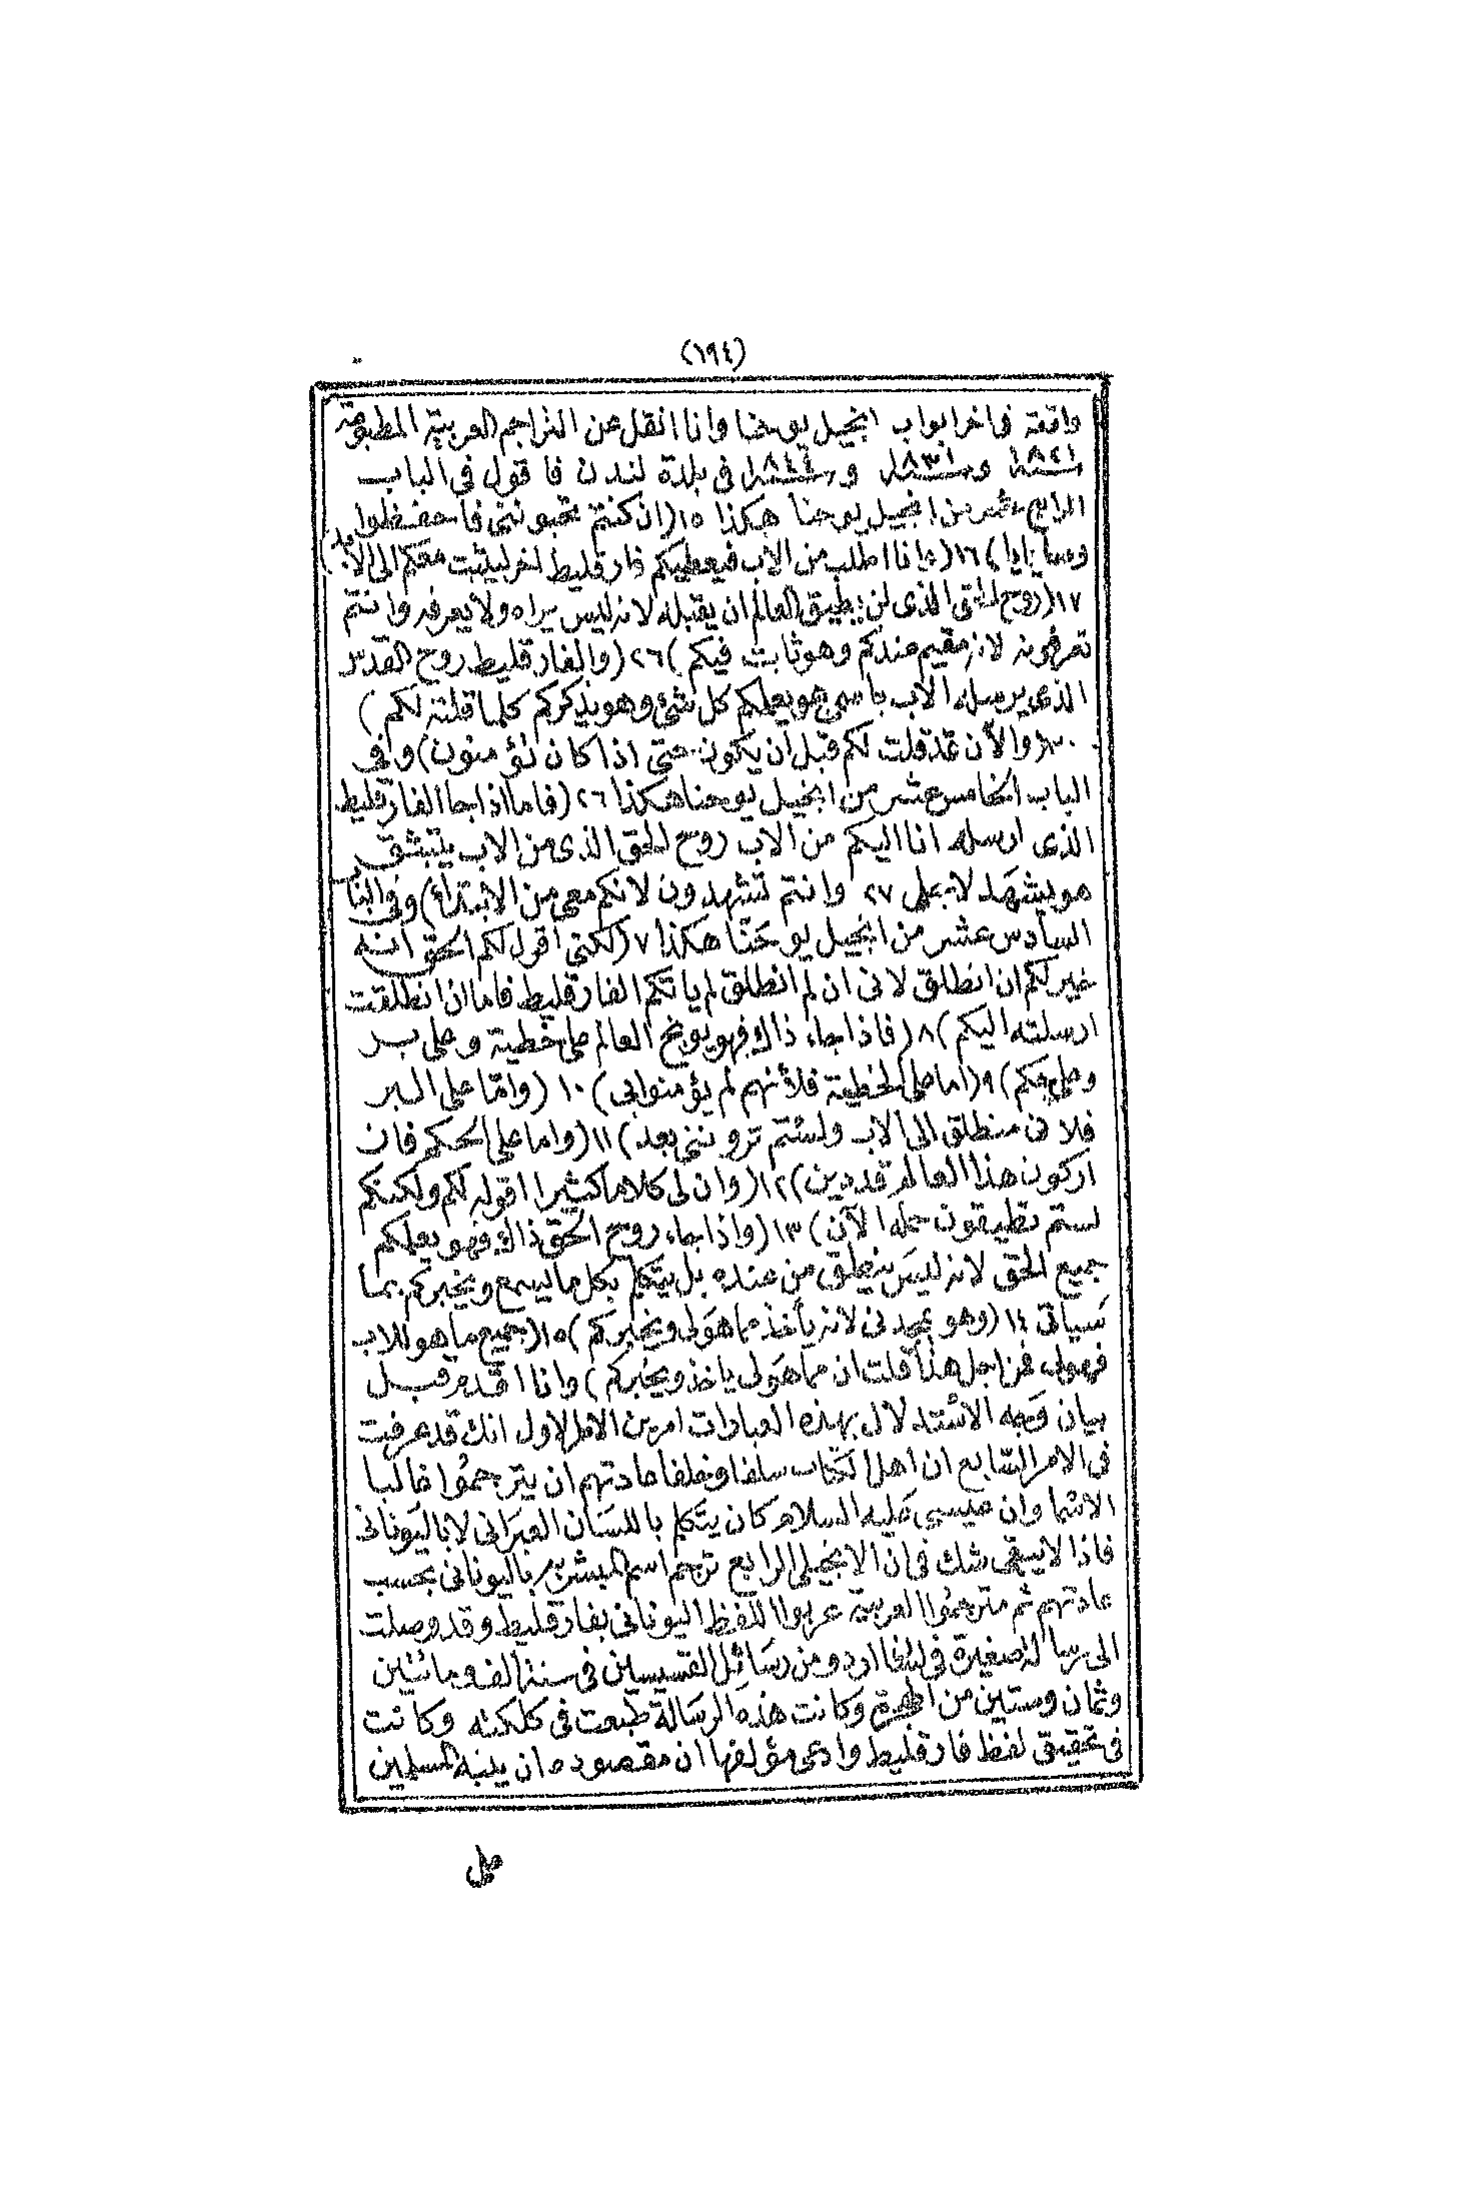 (١٩٤)
واقعة فى اخر ابواب انجيل يوحنا وانا انقل عن التراجم العربية المطبوعة
١٨٢١ و ١٨٣١ و ١٨٤٤ فى بلدة لندن فاقول فى الباب
الرابع عشر من انجيل يوحنا هكذا ١٥ (ان كنتم تحبوننى فاحفظوا
وصايايا) ١٦ (وانا اطلب من الاب فيعطيكم فارقليط اخر ليثبت معكم الى الابد)
١٧ (روح الحق الذى لن يطيق العالم ان يقبله لانه ليس يراه ولا يعرفه وانتم
تعرفونه لانه مقيم عندكم وهو ثابت فيكم) ٢٦ (والفارقليط روح القدس
الذى يرسله الاب باسمى هو يعلمكم كل شئ وهو يذكركم كلما قلته لكم)
٣٠ (والآن قد قلت لكم قبل ان يكون حتى اذا كان تؤمنون) وفى
الباب الخامس عشر من انجيل يوحنا هكذا ٢٦ (فاما اذا جا الفارقليط
الذى ارسله انا اليكم من الاب روح الحق الذى من الاب ينبثق
هو يشهد لاجلى ٢٧ وانتم تشهدون لانكم معى من الابتداء) وفى الباب
السادس عشر من انجيل يوحنا هكذا ٧ (لكنى اقول لكم الحق انه
خير لكم ان انطلق لانى ان لم انطلق لم ياتكم الفارقليط فاما ان انطلقت
ارسلته اليكم) ٨ (فاذا جاء ذاك فهو يوبخ العالم على خطية وعلى بر
وعلى حكم) ٩ (اما على الخطية فلأنهم لم يؤمنوا بى) ١٠ (وامّا على البر
فلانى منطلق الى الاب ولستم تروننى بعد) ١١ (واما على الحكم فان
اركون هذا العالم قد دين) ١٢ (وان لى كلاما كثيرا اقوله لكم ولكنكم
لستم تطيقون حمله الآن) ١٣ (واذا جاء روح الحق ذاك فهو يعلمكم
جميع الحق لانه ليس ينطق من عنده بل يتكلم بكل ما يسمع ويخبركم بما
سياتى ١٤ (وهو يمجدنى لانه يأخذ مما هو لى ويخبركم) ١٥ (جميع ما هو للاب
فهو لى فمن اجل هذا قلت ان مما هو لى ياخذ ويخبركم) وانا اقدم قبل
بيان وجه الاستدلال بهذه العبارات امرين الامر الاول انك قد عرفت
فى الامر السابع ان اهل الكتاب سلفا وخلفا عادتهم ان يترجموا غالبا
الاسما وان عيسى عليه السلام كان يتكلم باللسان العبرانى لا باليونانى
فاذا لا يبقى شك فى ان الانجيلى الرابع ترجم اسم المبشر به باليونانى بحسب
عادتهم ثم مترجموا العربية عربوا اللفظ اليونانى بفارقليط وقد وصلت
الى رسالة صغيرة فى لسان اردو من رسائل القسيسين فى سنة الف ومائتين
وثمان وستين من الهجرة وكانت هذه الرسالة طبعت فى كلكته وكانت
فى تحقيق لفظ فارقليط وادعى مؤلفها ان مقصوده ان ينبه المسلمين
على